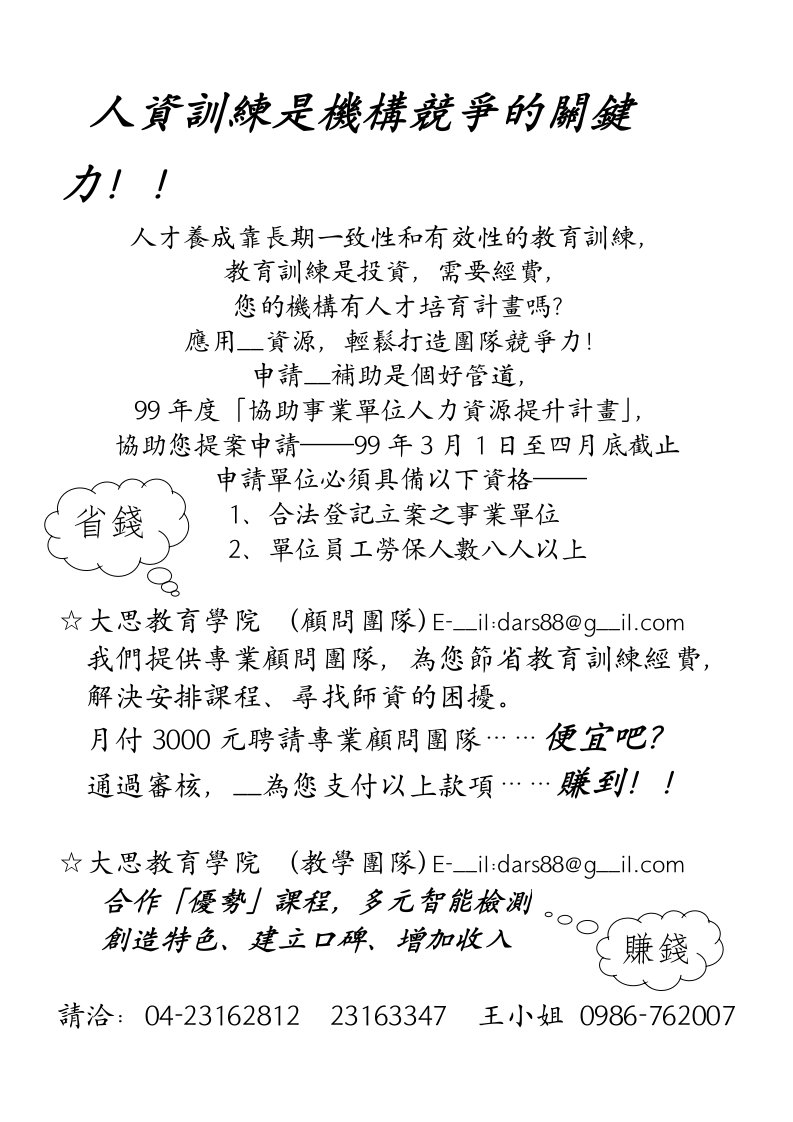 人資訓練是機構競爭的關鍵
力！！
人才養成靠長期一致性和有效性的教育訓練，
教育訓練是投資，需要經費，
您的機構有人才培育計畫嗎？
應用__資源，輕鬆打造團隊競爭力！
申請__補助是個好管道，
99 年度「協助事業單位人力資源提升計畫」，
協助您提案申請──99 年 3 月 1 日至四月底截止
申請單位必須具備以下資格──
省錢
1、合法登記立案之事業單位
2、單位員工勞保人數八人以上
☆大思教育學院 （顧問團隊）E-__il:dars88@g__il.com
我們提供專業顧問團隊，為您節省教育訓練經費，
解決安排課程、尋找師資的困擾。
月付 3000 元聘請專業顧問團隊……便宜吧？
通過審核，__為您支付以上款項……賺到！！
☆大思教育學院 （教學團隊）E-__il:dars88@g__il.com
合作「優勢」課程，多元智能檢測
創造特色、建立口碑、增加收入
賺錢
請洽： 04-23162812 23163347 王小姐 0986-762007